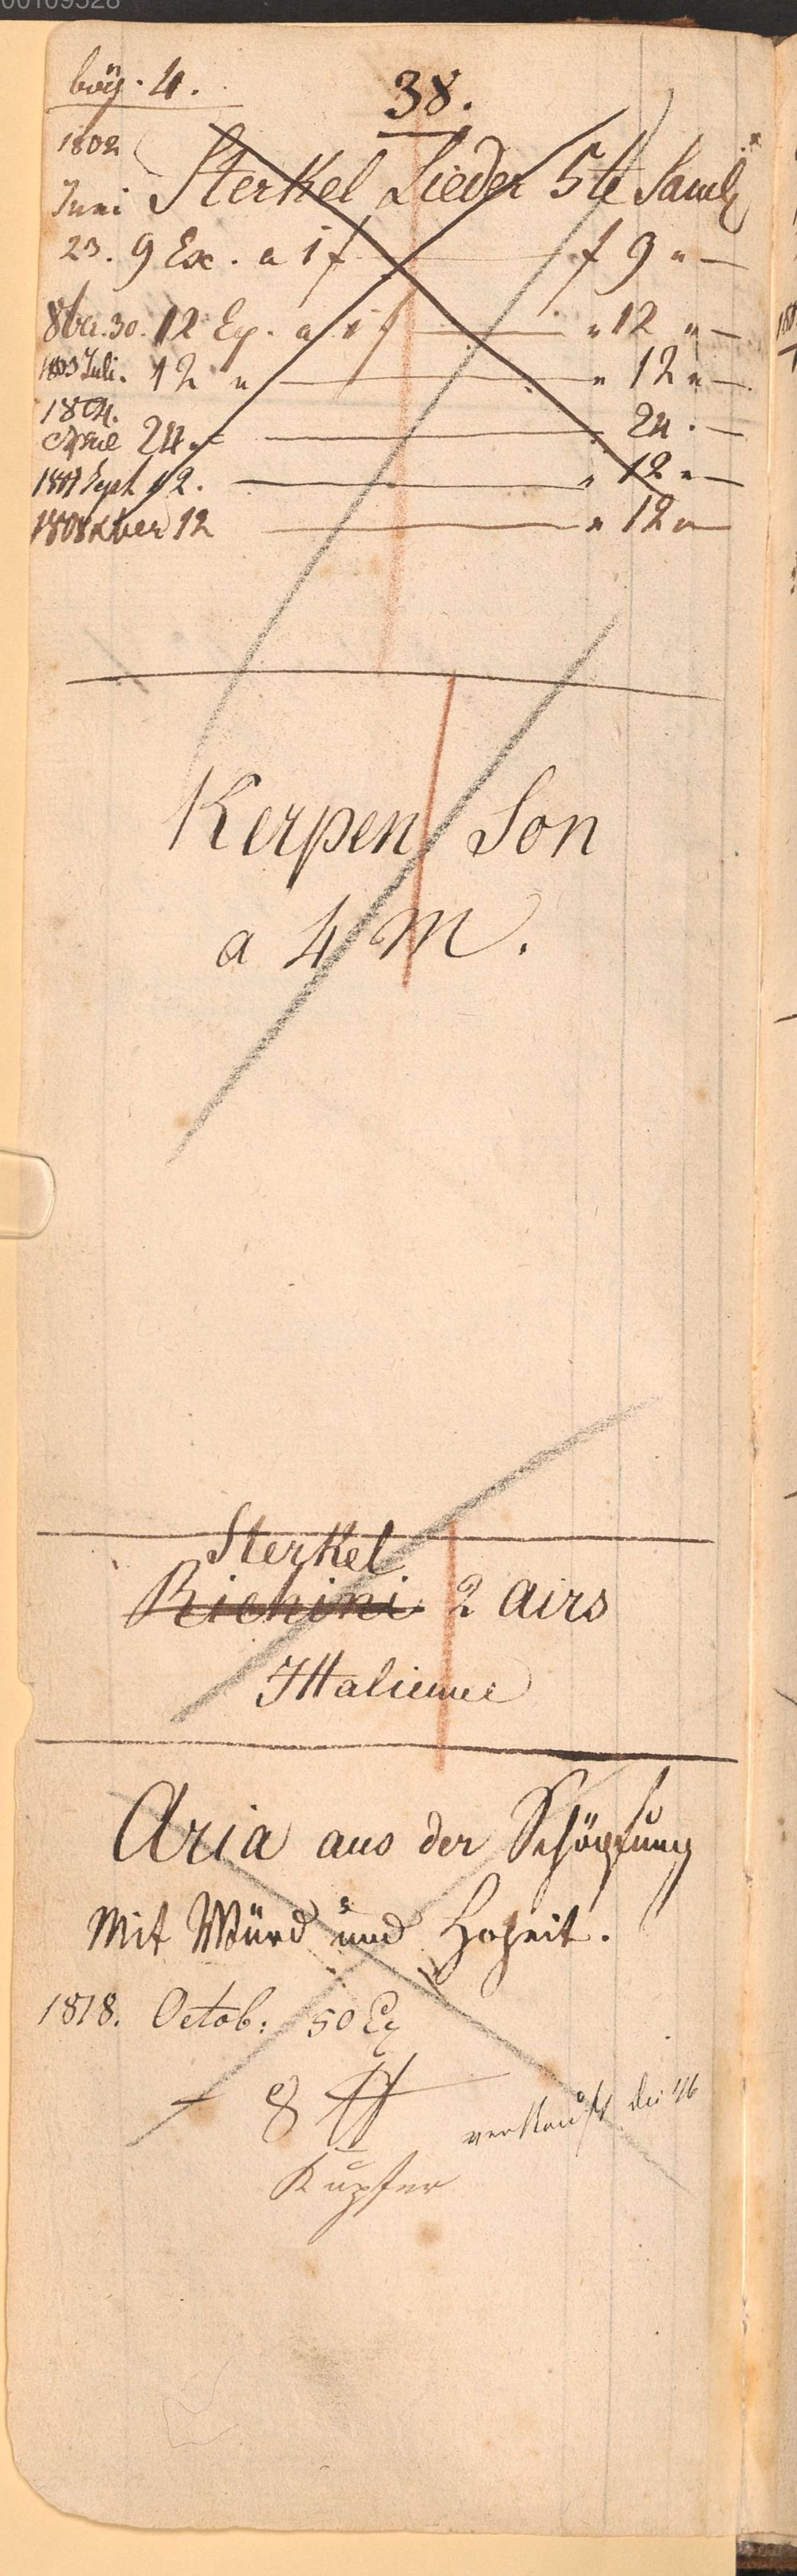 00109528
bög. 4.
38.
1802
Juni Sterkel Lieder 5te Saml
23. 9 Ex. a 1 f — f 9 " —
8br. 30. 12 Ex. a 1 f — " 12 " —
1803 Juli. 12 " — " 12 " —
1804.
April 24. — 24 . —
Sept 12. — " 12 " —
1808 12 — " 12 " —
Kerpen Son
a 4 M.
Sterkel
Richini 2 airs
Ittalienne
Aria aus der Schöpfung
Mit Würd und Hoheit.
1818. Octob: 50 Ex
8
verkauft
Kupfer